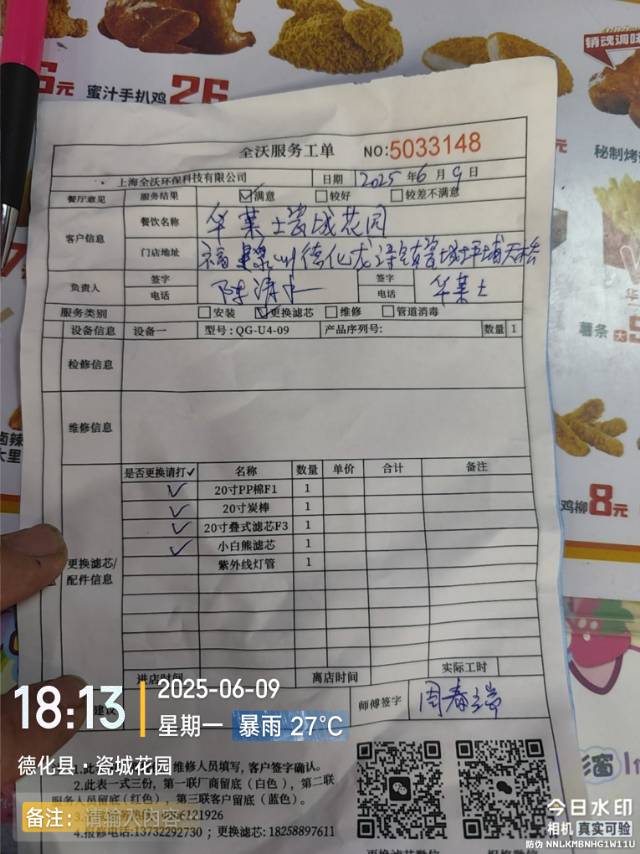 元
蜜汁手扒鸡 26
销魂调味
秘制烤
全沃服务工单 NO:5033148
上海全沃环保科技有限公司 日期 2025 年 6 月 9 日
餐厅意见 服务结果 满意 较好 较差不满意
客户信息 餐饮名称 华莱士瓷城花园
门店地址
负责人 签字 签字
电话 电话 华莱士
服务类别 安装 更换滤芯 维修 管道消毒
设备信息 设备一 型号:QG-U4-09 产品序列号: 数量 1
检修信息
维修信息
是否更换请打✓ 名称 数量 单价 合计 备注
✓ 20寸PP棉F1 1
✓ 20寸炭棒 1
✓ 20寸叠式滤芯F3 1
✓ 小白熊滤芯 1
紫外线灯管 1
更换滤芯/
配件信息
进店时间 离店时间 实际工时
师傅签字
薯条
鸡柳 8元
18:13
2025-06-09
星期一 暴雨 27°C
德化县·瓷城花园
维修人员填写,客户签字确认。
2.此表一式三份,第一联厂商留底(白色),第二联
服务人员留底(红色),第三联客户留底(蓝色)。
备注: 请输入内容
报修电话:13732292730;更换滤芯:18258897611
今日水印
相机 真实可验
防伪 NNLKMBNHG1W11U